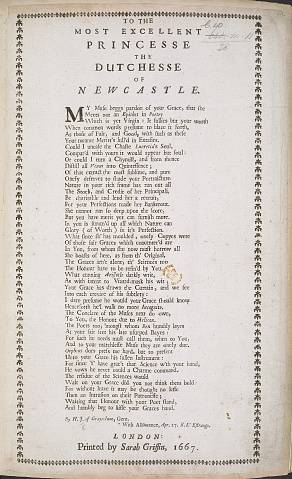 TO THE
MOST EXCELLENT
PRINCESSE
THE
DUTCHESSE
OF
NEWCASTLE.
MY Muse beggs pardon of your Grace, that she
Meets not an Epithet in Poetry
Which is yet Virgin: It sullies but your worth
When common words presume to blaze it forth,
As those of Fair, and Good, with such as these
Your meaner Merit's
Could I unsoule the Chaste Lucretia's Soul,
Compar'd with yours it would appear but foul:
Or could I turn a Chymist, and from thence
Distill all Venus into Quintessence;
Of that extract the most sublime, and pure
Onely deserves to shade your Portraicture.
Nature in your rich frame has run out all
The Stock, and Credit of her Principall,
Be charitable and lend her a recruit,
For your Perfections made her Bankrumpt.
She cannot run so deep upon the score
But you have more yet can furnish more.
In you is summ'd up all which Nature can
Glory (of Worth) in it's Perfection.
What since sh' has moulded, onely Copyes were
Of those fair Graces which center'd are
In You, from whom she now must borrow all
She boasts of here, as from th' Original.
The Graces ar'n't alone; th' Sciences too
The Honour have to be refin'd by You.
What cunning Aristotle darkly writ,
As with intent to Vizard-mask his wit;
Your Grace has drawn the Curtain, and we see
Into each crevice of his subtlety:
I dare presume he would your Grace should know
Henceforth he'l walk no more Incognito.
The Conclave of the Muses next do owe,
To You, the Honour due to Helicon.
The Poets too, 'mongst whom Ben humbly layes
At your fair feet his late usurped Bayes:
For such he needs must call them, when to You,
And to your matchlesse Muse they are onely due.
Orpheus does press too hard, but to present
Unto your Grace his useless Instrument:
For since 't have grac't that Science with your hand,
He vows he never could a Charme command.
The residue of the Sciences would
Wait on your Grace did you not think them bold:
For without leave it may be thought no lesse
Then an Intrusion on their Patronesse;
Waiting that Honour with your Poet stand,
And humbly beg to kisse your Graces hand.
By H. J. of Grayes-Inne, Gent.
With Allowance, Apr. 17. R. L' Estrange.
LONDON:
Printed by Sarah Griffin, 1667.